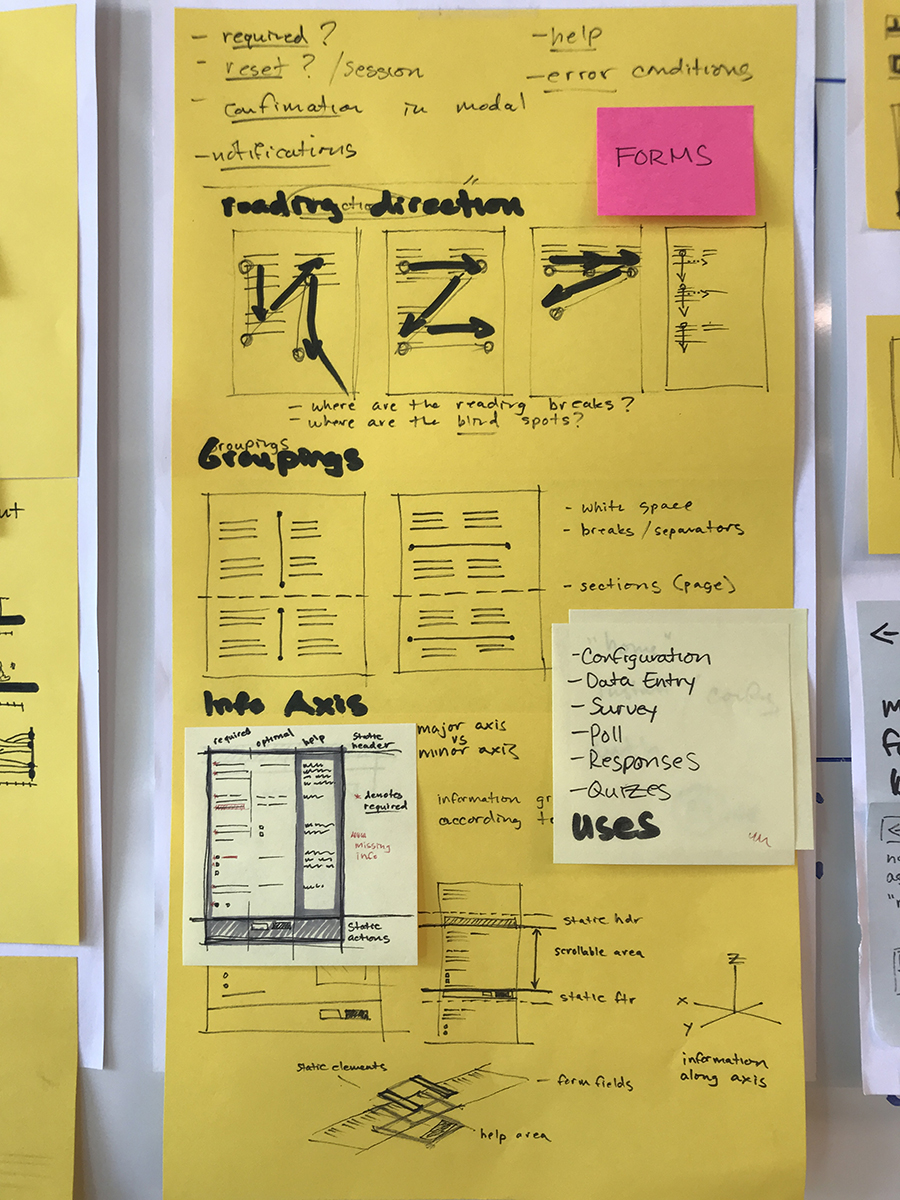 - required ?
- reset ? / session
- confimation in modal
- notifications
- help
- error conditions
FORMS
reading direction
- where are the reading breaks?
- where are the blind spots?
Groupings
Groupings
- white space
- breaks / separators
- sections (page)
Info Axis
major axis
vs
minor axis
information gr
according to
required
optional
help
static
header
* denotes
required
missing
info
static
actions
- Configuration
- Data Entry
- Survey
- Poll
- Responses
- Quizes
uses
static hdr
scrollable area
static ftr
Z
X
Y
information
along axis
static elements
form fields
help area